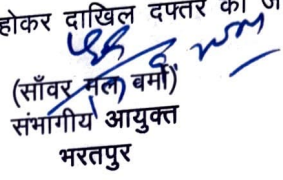 होकर दाखिल दफ्तर की
(साँवर मल वर्मा)
संभागीय आयुक्त
भरतपुर